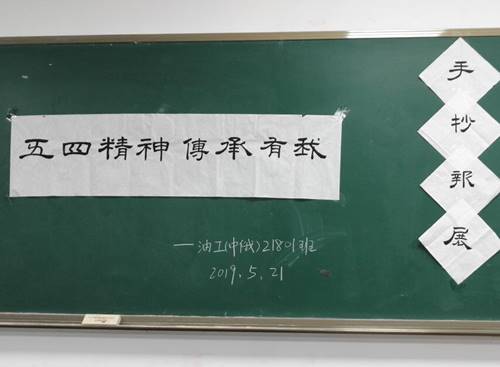 五四精神 傳承有我
手抄报展
一油工(中俄)21801班
2019.5.21